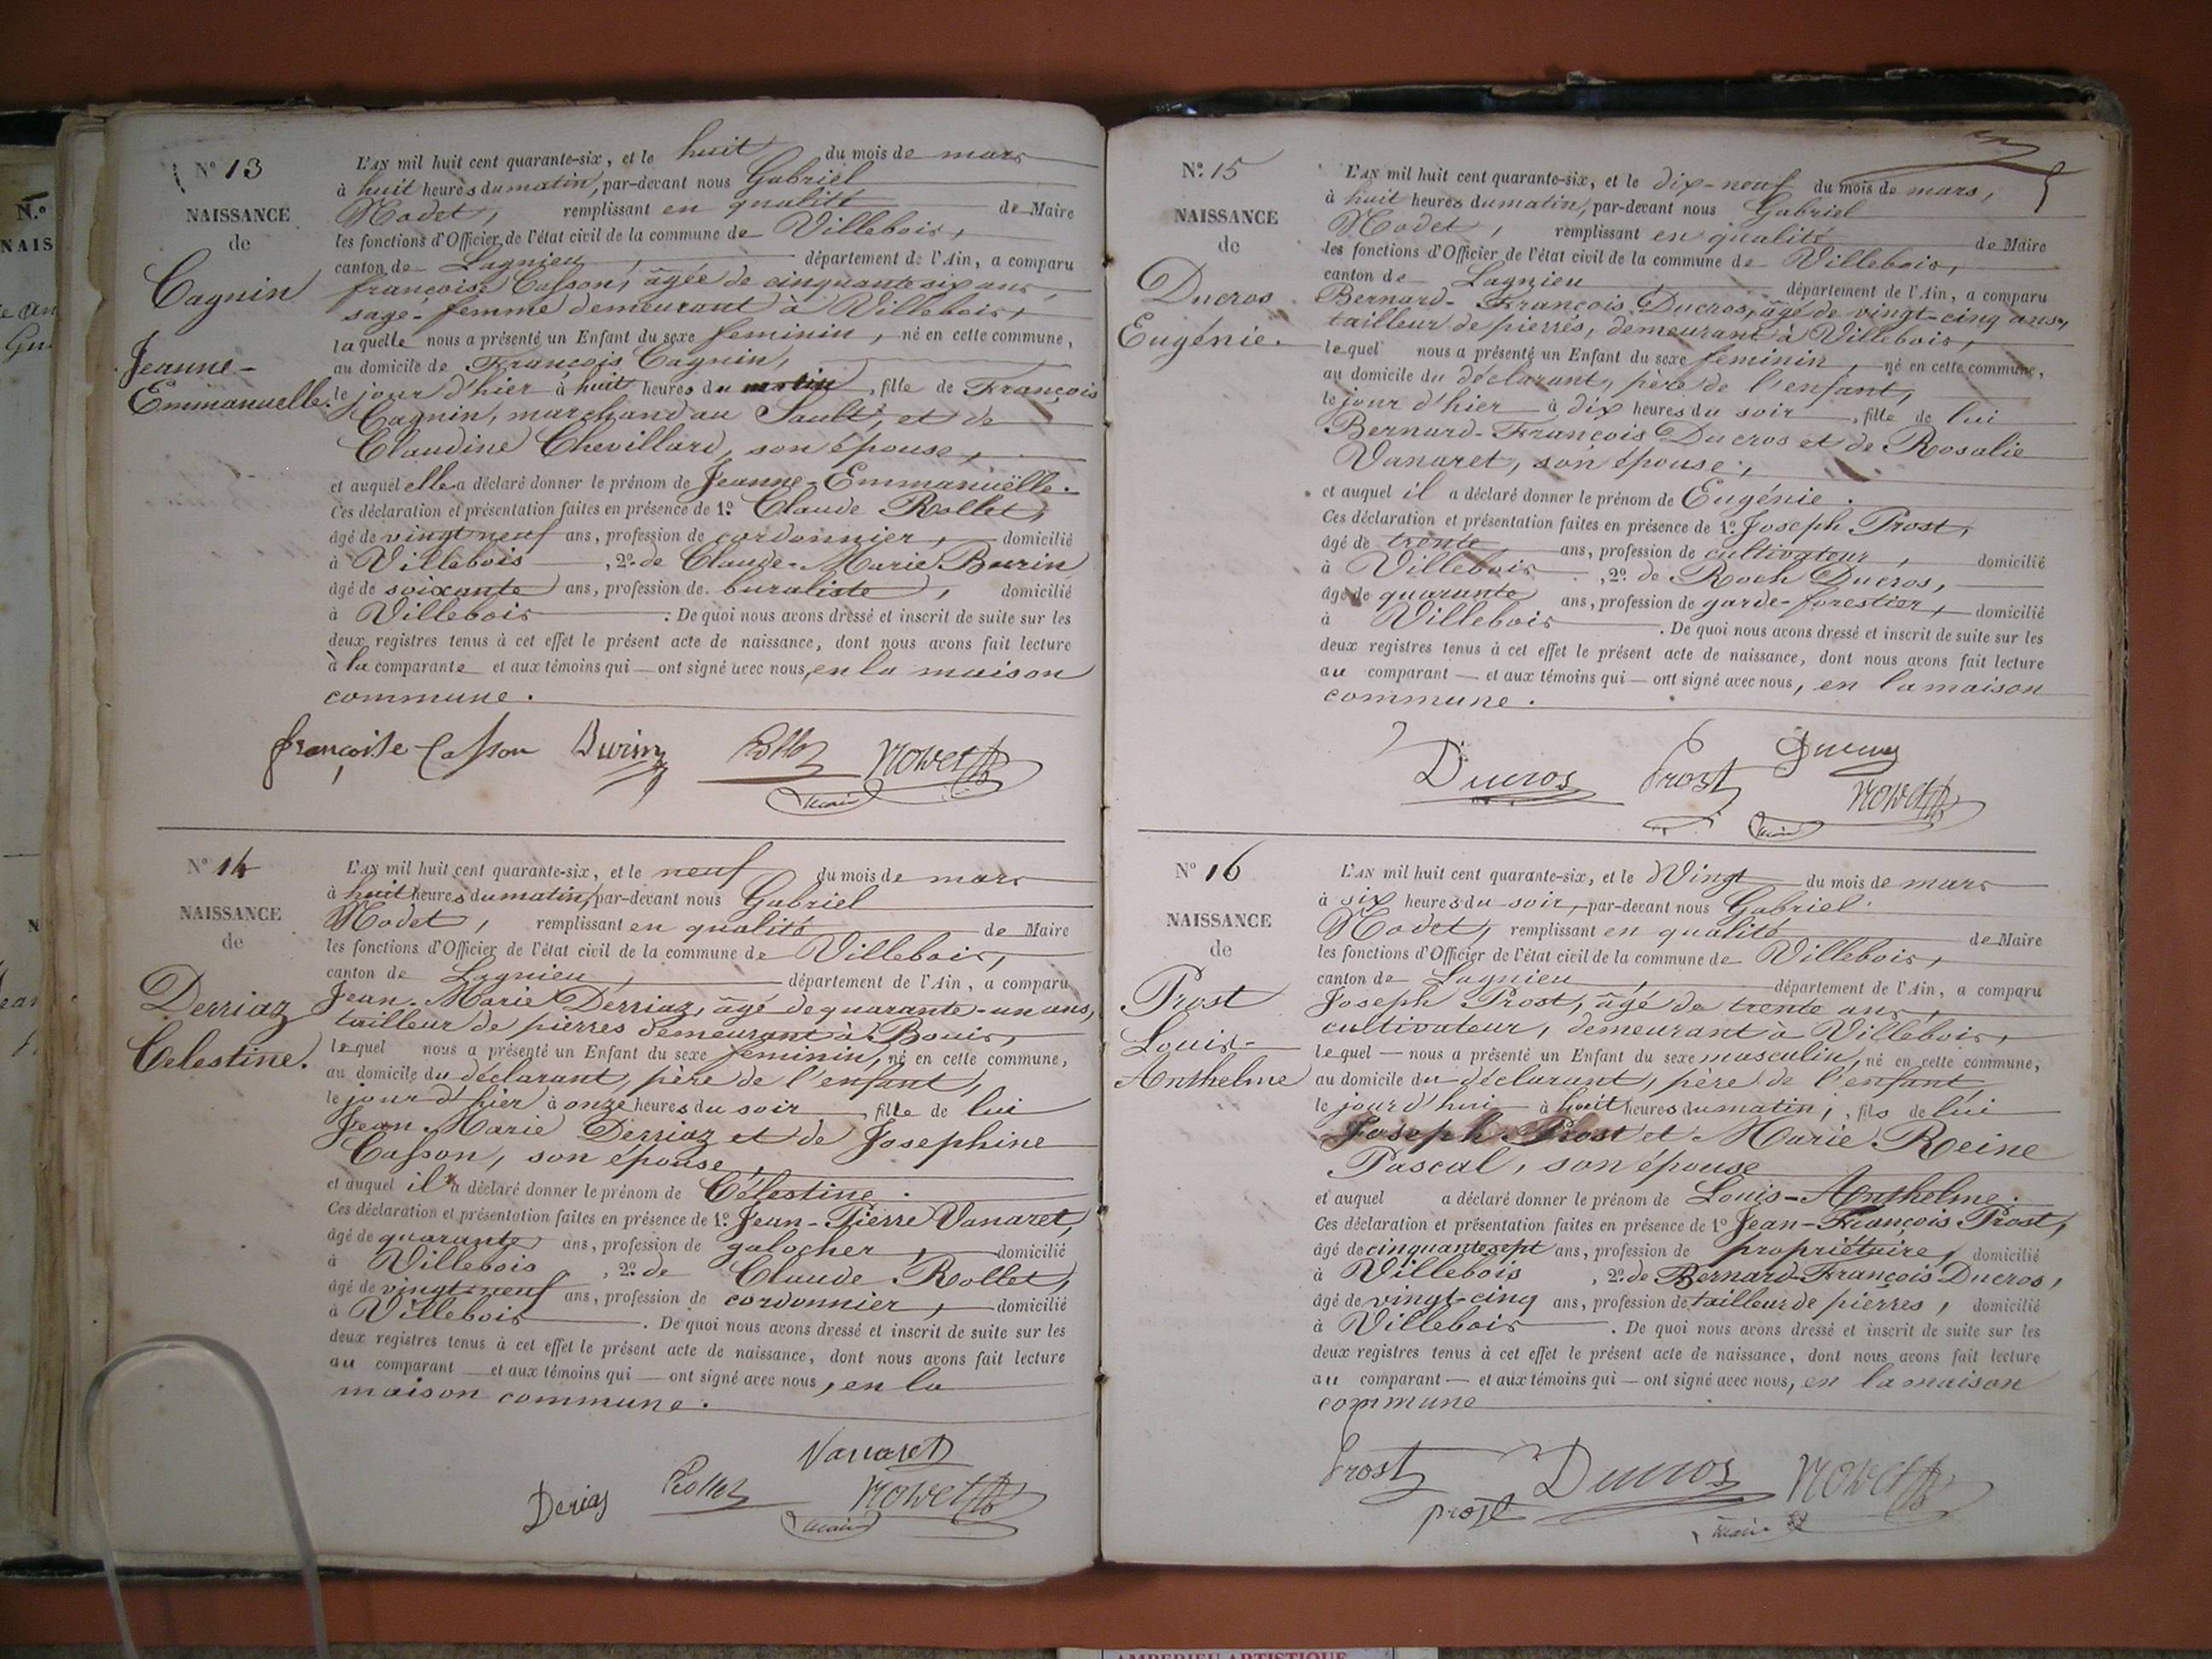 N° 13
NAISSANCE
de
Cagnin
Jeanne-
Emmanuelle.
L'AN mil huit cent quarante-six, et le huit du mois de mars
à huit heures du matin, par-devant nous Gabriel
Nodet, remplissant en qualité de Maire
les fonctions d'Officier de l'état civil de la commune de Villebois,
canton de Lagnieu, département de l'Ain, a comparu
françoise Casson, âgée de cinquante six ans,
sage-femme demeurant à Villebois,
laquelle nous a présenté un Enfant du sexe feminin, né en cette commune,
au domicile de François Cagnin,
le jour d'hier à huit heures du matin, fille de François
Cagnin, marchand au Sault, et de
Claudine Chevillard, son épouse,
et auquel elle a déclaré donner le prénom de Jeanne-Emmanuëlle.
Ces déclaration et présentation faites en présence de 1° Claude Rollet,
âgé de vingt neuf ans, profession de cordonnier, domicilié
à Villebois, 2° de Claude-Marie Burin
âgé de soixante ans, profession de buraliste, domicilié
à Villebois. De quoi nous avons dressé et inscrit de suite sur les
deux registres tenus à cet effet le présent acte de naissance, dont nous avons fait lecture
à la comparante et aux témoins qui — ont signé avec nous, en la maison
commune.
françoise Casson Burin Rollet Nodet
maire
N° 14
NAISSANCE
de
Derriaz
Celestine.
L'AN mil huit cent quarante-six, et le neuf du mois de mars
à huit heures du matin, par-devant nous Gabriel
Nodet, remplissant en qualité de Maire
les fonctions d'Officier de l'état civil de la commune de Villebois,
canton de Lagnieu, département de l'Ain, a comparu
Jean-Marie Derriaz, âgé de quarante-un ans,
tailleur de pierres demeurant à Bouis,
lequel nous a présenté un Enfant du sexe feminin, né en cette commune,
au domicile du déclarant, père de l'enfant,
le jour d'hier à onze heures du soir, fille de lui
Jean-Marie Derriaz et de Josephine
Casson, son épouse,
et auquel il a déclaré donner le prénom de Célestine.
Ces déclaration et présentation faites en présence de 1° Jean-Pierre Vanaret,
âgé de quarante ans, profession de galocher, domicilié
à Villebois, 2° de Claude Rollet,
âgé de vingt-neuf ans, profession de cordonnier, domicilié
à Villebois. De quoi nous avons dressé et inscrit de suite sur les
deux registres tenus à cet effet le présent acte de naissance, dont nous avons fait lecture
au comparant — et aux témoins qui — ont signé avec nous, en la
maison commune.
Vanaret
Deriaz Rollet Nodet
maire
N° 15
NAISSANCE
de
Ducros
Eugénie.
L'AN mil huit cent quarante-six, et le dix-neuf du mois de mars,
à huit heures du matin, par-devant nous Gabriel
Nodet, remplissant en qualité de Maire
les fonctions d'Officier de l'état civil de la commune de Villebois,
canton de Lagnieu département de l'Ain, a comparu
Bernard-François Ducros, âgé de vingt-cinq ans,
tailleur de pierres, demeurant à Villebois,
lequel nous a présenté un Enfant du sexe feminin, né en cette commune,
au domicile du déclarant, père de l'enfant,
le jour d'hier à dix heures du soir, fille de lui
Bernard-François Ducros et de Rosalie
Vanaret, son épouse,
et auquel il a déclaré donner le prénom de Eugénie.
Ces déclaration et présentation faites en présence de 1° Joseph Prost,
âgé de trente ans, profession de cultivateur, domicilié
à Villebois, 2° de Roch Ducros,
âgé de quarante ans, profession de garde-forestier, domicilié
à Villebois. De quoi nous avons dressé et inscrit de suite sur les
deux registres tenus à cet effet le présent acte de naissance, dont nous avons fait lecture
au comparant — et aux témoins qui — ont signé avec nous, en la maison
commune.
Ducros Prost
Nodet
maire
N° 16
NAISSANCE
de
Prost
Louis-
Anthelme
L'AN mil huit cent quarante-six, et le Vingt du mois de mars
à six heures du soir, par-devant nous Gabriel
Nodet, remplissant en qualité de Maire
les fonctions d'Officier de l'état civil de la commune de Villebois,
canton de Lagnieu, département de l'Ain, a comparu
Joseph Prost, âgé de trente ans,
cultivateur, demeurant à Villebois,
lequel — nous a présenté un Enfant du sexe masculin, né en cette commune,
au domicile du déclarant, père de l'enfant
le jourd'hui à huit heures du matin, fils de lui
Joseph Prost et Marie-Reine
Pascal, son épouse
et auquel a déclaré donner le prénom de Louis-Anthelme.
Ces déclaration et présentation faites en présence de 1° Jean-François Prost,
âgé de cinquante sept ans, profession de propriétaire, domicilié
à Villebois, 2° de Bernard-François Ducros,
âgé de vingt-cinq ans, profession de tailleur de pierres, domicilié
à Villebois. De quoi nous avons dressé et inscrit de suite sur les
deux registres tenus à cet effet le présent acte de naissance, dont nous avons fait lecture
au comparant — et aux témoins qui — ont signé avec nous, en la maison
commune
Prost Ducros Nodet
prost
maire
AMBERIEU ARTISTIQUE